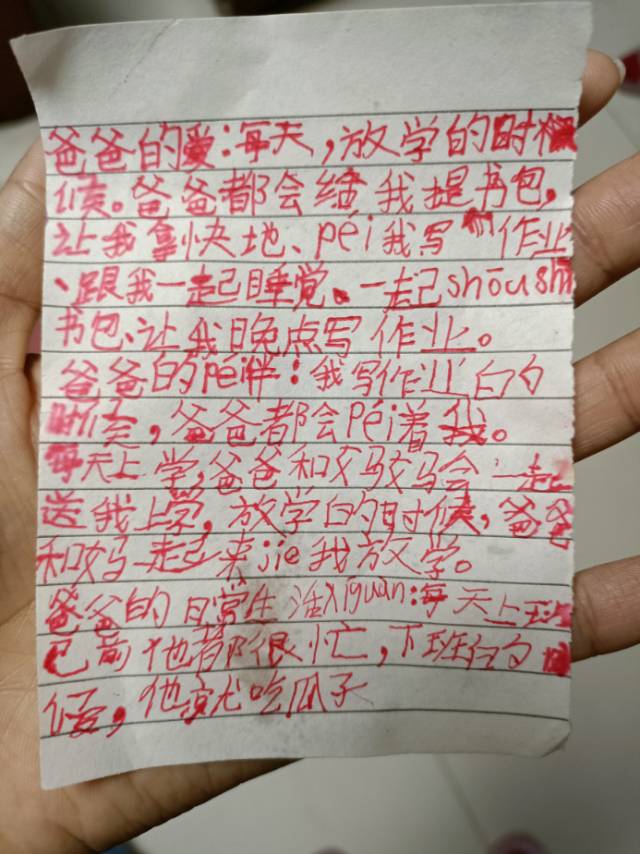 爸爸的爱:每天,放学的时
候。爸爸都会给我提书包,
让我拿快地、péi我写作业
、跟我一起睡觉、一起shōushi
书包、让我晚点写作业。
爸爸的péi伴:我写作业的
时候,爸爸都会péi着我。
每天上学,爸爸和妈妈会一起
送我上学,放学的时候,爸爸
和妈一起来jiē我放学。
爸爸的日常生活xíguàn:每天上班
已前他都很忙,下班的
候,他就吃瓜子